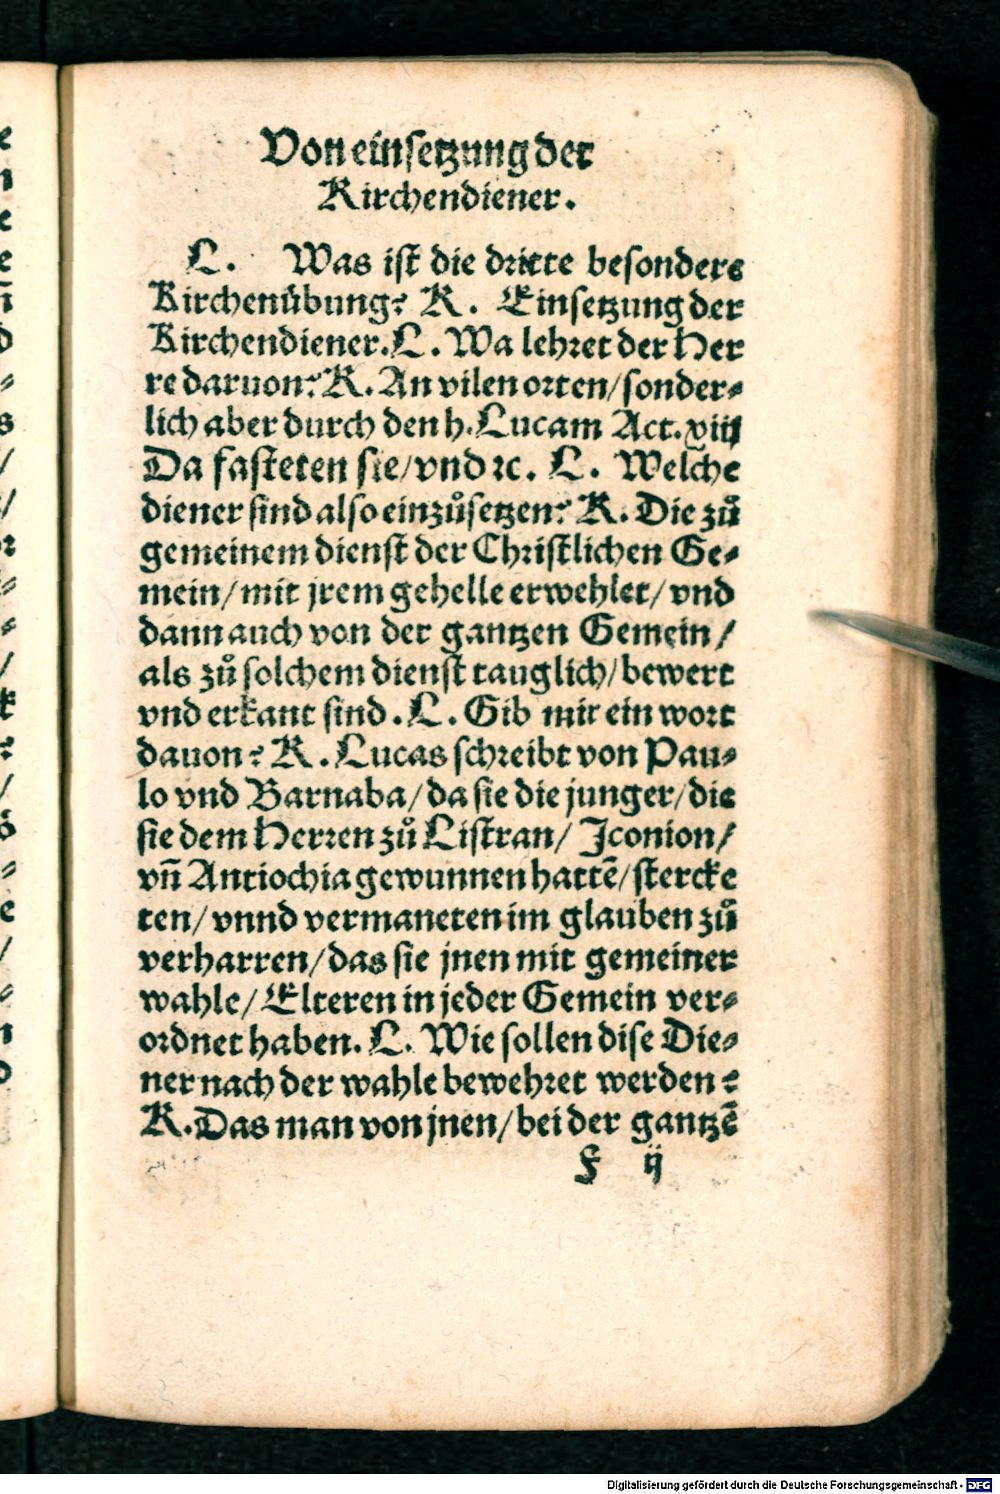 Von einsetzung der
Kirchendiener.
L. Was ist die dritte besondere
Kirchenübung? K. Einsetzung der
Kirchendiener. L. Wa lehret der Her
re daruon? K. An vilen orten/ sonder⸗
lich aber durch den h. Lucam Act. xiiij
Da fasteten sie/ vnd ꝛc. L. Welche
diener sind also einzůsetzen? K. Die zů
gemeinem dienst der Christlichen Ge⸗
mein/ mit jrem gehelle erwehlet/ vnd
dann auch von der gantzen Gemein/
als zů solchem dienst tauglich/ bewert
vnd erkant sind. L. Gib mir ein wort
dauon? K. Lucas schreibt von Pau⸗
lo vnd Barnaba/ da sie die junger/ die
sie dem Herren zů Listran/ Iconion/
vñ Antiochia gewunnen hattē/ stercke
ten/ vnnd vermaneten im glauben zů
verharren/ das sie jnen mit gemeiner
wahle/ Elteren in jeder Gemein ver⸗
ordnet haben. L. Wie sollen dise Die⸗
ner nach der wahle bewehret werden?
K. Das man von jnen/ bei der gantzē
F ij
Digitalisierung gefördert durch die Deutsche Forschungsgemeinschaft - DFG